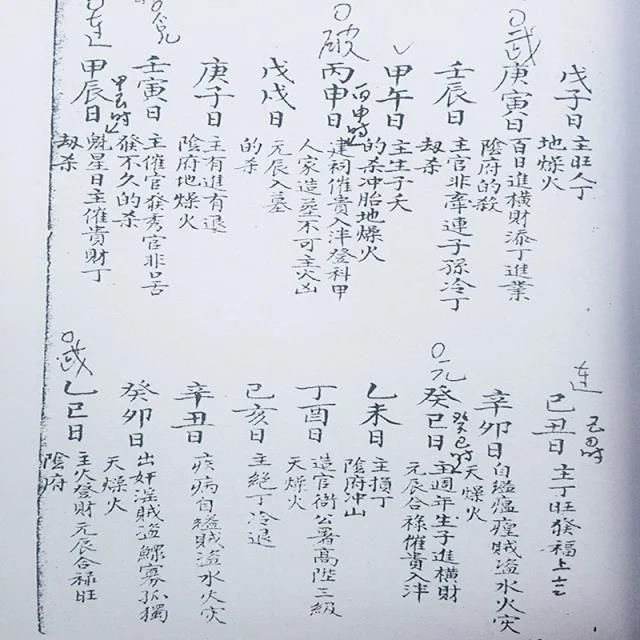 戊子日 主旺人丁
地燥火
庚寅日 百日進橫財添丁進業
陰府的殺
壬辰日 主官非牽連子孫冷丁
劫杀
甲午日 主生子夭
的杀冲胎地燥火
丙申日 建祠催貴入泮登科甲
人家造葬不可主火凶
丙申時
戊戌日 元辰入墓
的杀
庚子日 主有進有退
陰府地燥火
壬寅日 主催官發秀官非口舌
發不久的杀
甲辰日 魁星日主催貴財丁
劫杀
己丑日 主丁旺發福上吉
己丑時
辛卯日 自縊瘟瘟賊盜水火灾
天燥火
癸巳日 主週年生子進橫財
元辰合祿催貴入泮
癸巳時
乙未日 主損丁
陰府冲山
丁酉日 造官衙公署高陞三級
天燥火
己亥日 主絕丁冷退
辛丑日 疾病自縊賊盜水火灾
癸卯日 出奸淫賊盜鰥寡孤獨
天燥火
乙巳日 主火登財元辰合祿旺
陰府